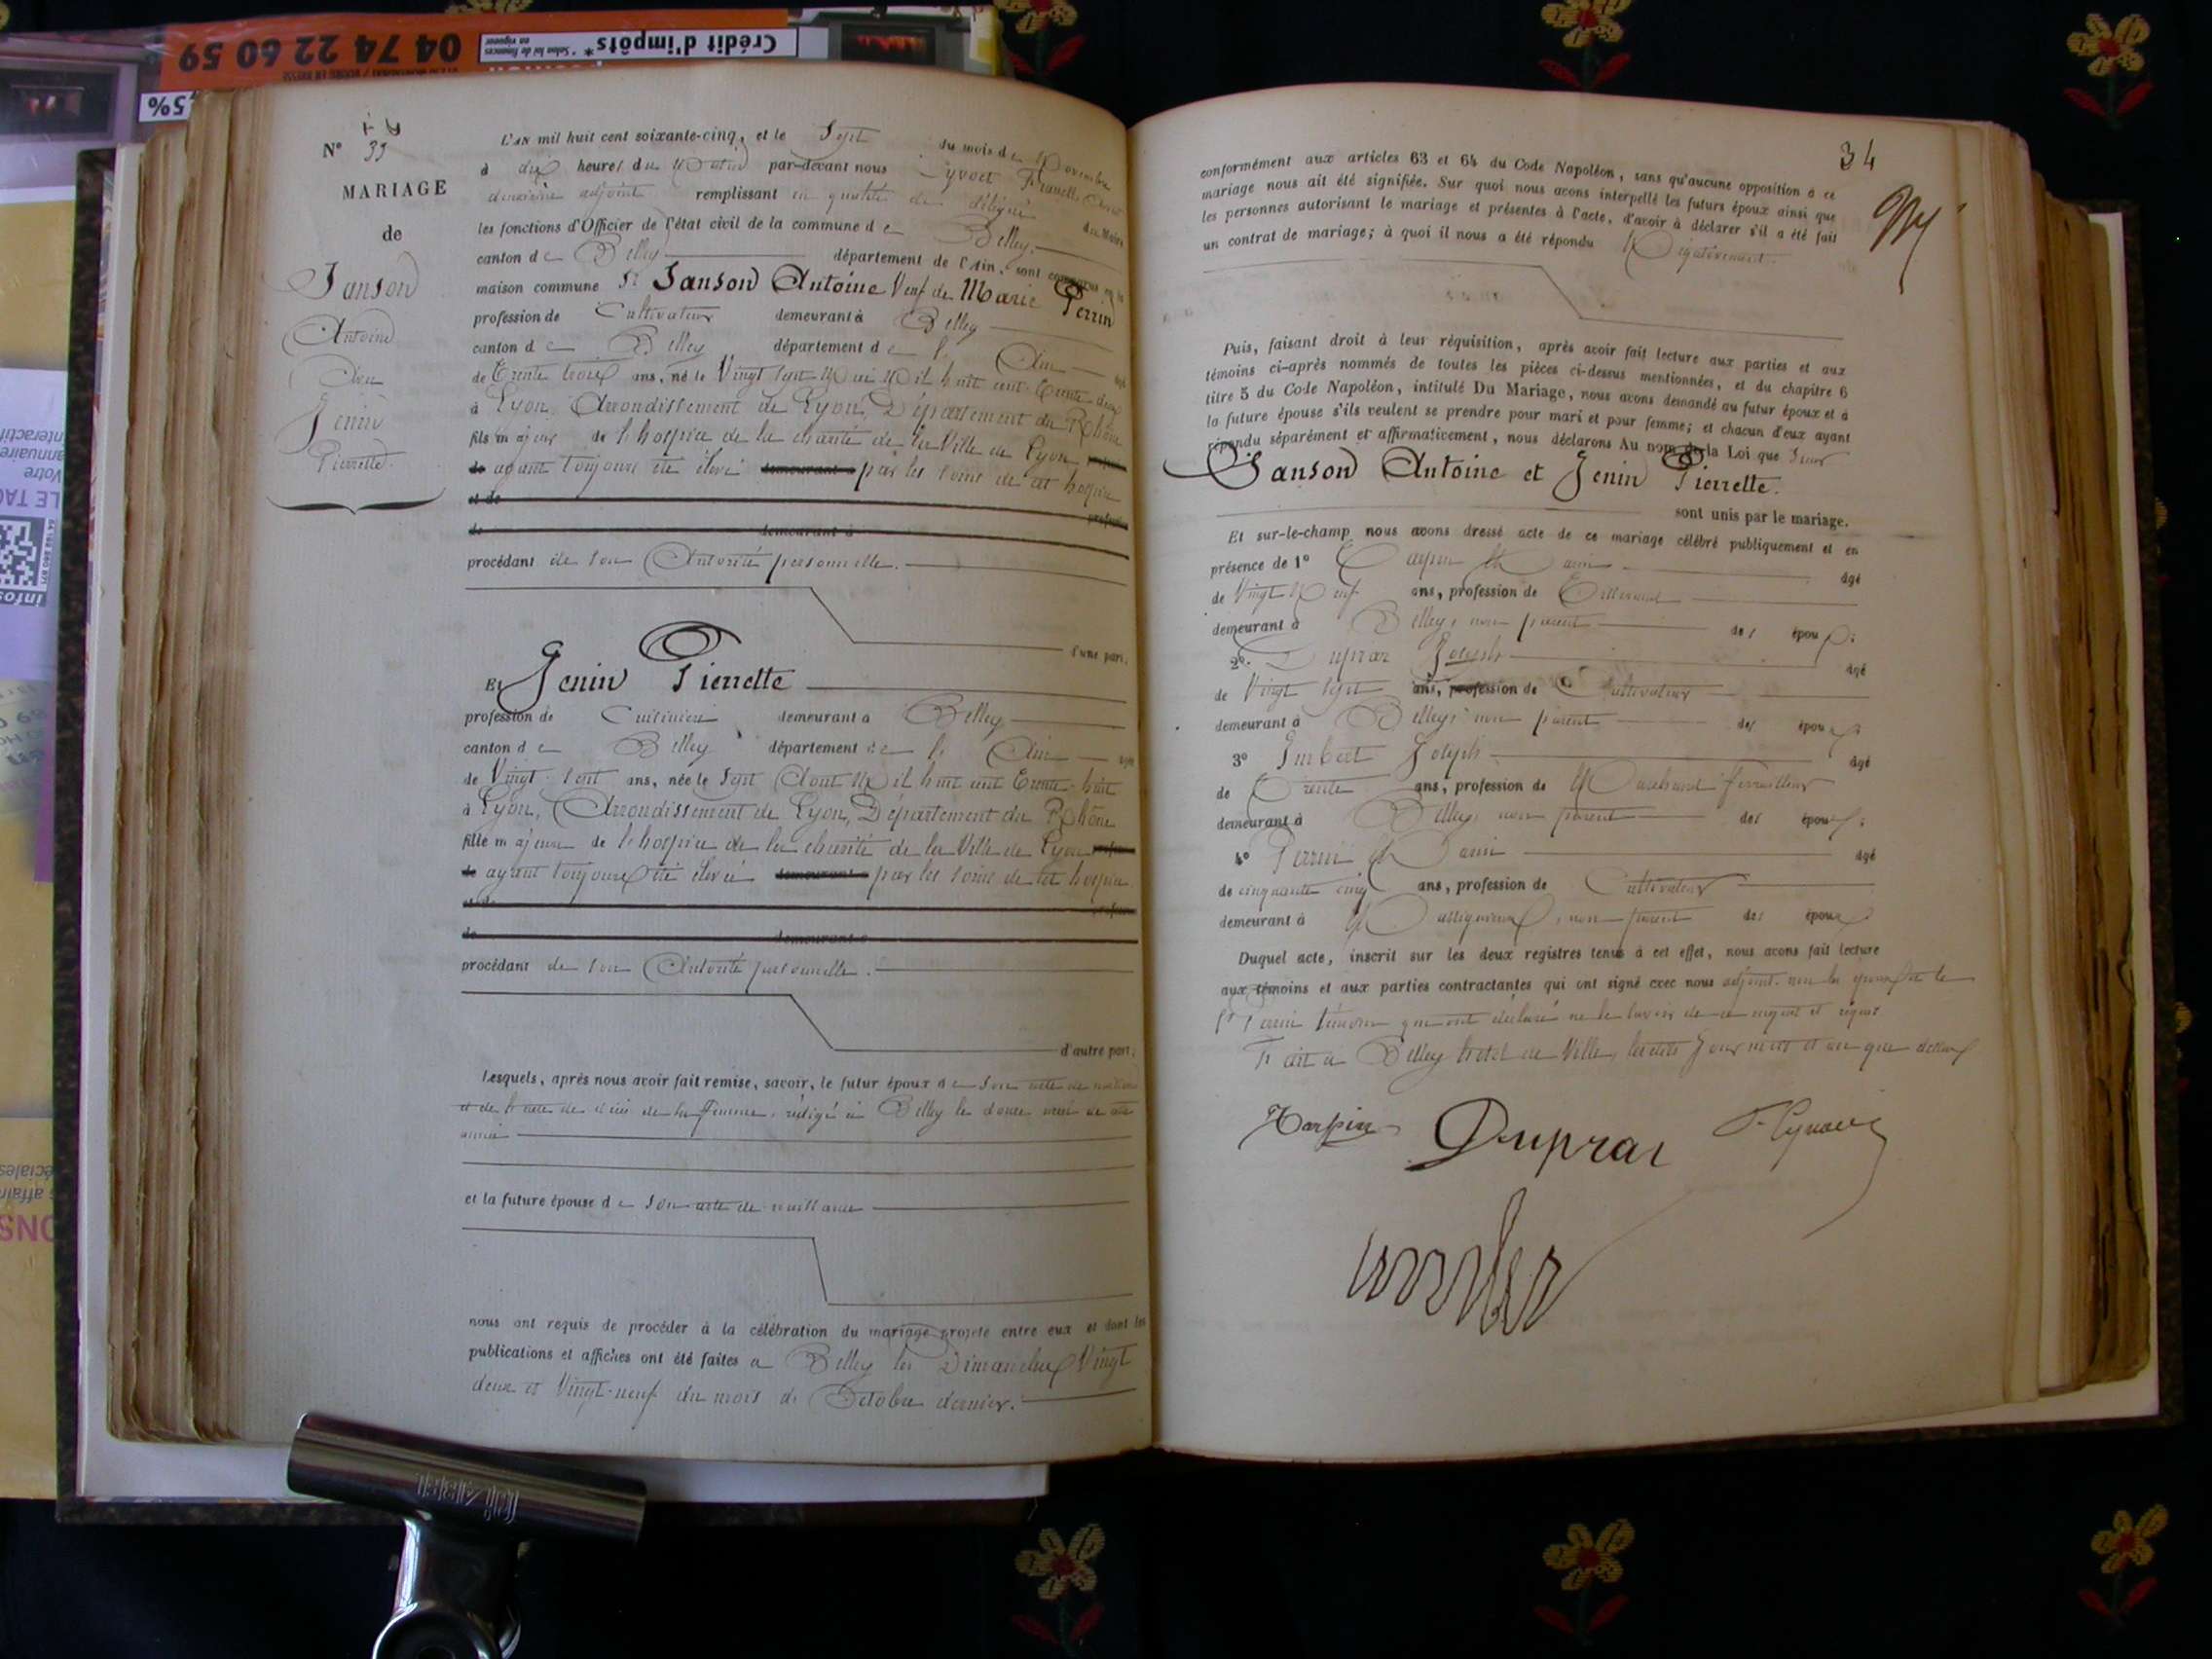 04 74 22 60 59
Crédit d'impôts*
* Selon loi de finances en vigueur
5%
N° 39
MARIAGE
de
Sanson
Antoine
Avec
Jenin
Pierrette
L'AN mil huit cent soixante-cinq, et le Sept du mois de Novembre
à dix heures du Matin par-devant nous
deuxième adjoint remplissant en qualité de délégué du Maire
les fonctions d'Officier de l'état civil de la commune de Belley
canton de Belley département de l'Ain, sont comparus en la
maison commune Sr Sanson Antoine Veuf de Marie Perrin
profession de Cultivateur demeurant à Belley
canton de Belley département de l'Ain âgé
de Trente trois ans, né le Vingt sept Mai Mil huit cent Trente deux
à Lyon, Arrondissement de Lyon, Département du Rhône
fils majeur de l'hospice de la charité de la Ville de Lyon
de ayant toujours été élevé demeurant à par les soins de cet hospice
et de profession
de demeurant à
procédant de son Autorité personnelle.
d'une part;
Et Jenin Pierrette
profession de Cuisinière demeurant à Belley
canton de Belley département de l'Ain âgée
de Vingt-sept ans, née le Sept Aout Mil huit cent Trente-huit
à Lyon, Arrondissement de Lyon, Département du Rhône
fille majeure de l'hospice de la charité de la Ville de Lyon
de ayant toujours été élevée demeurant à par les soins de cet hospice.
et de
de demeurant à
procédant de son Autorité personnelle.
d'autre part;
Lesquels, après nous avoir fait remise, savoir, le futur époux de son acte de naissance
et de l'acte de décès de sa femme, rédigé à Belley le douze mai de cette
année
et la future épouse de son acte de naissance
nous ont requis de procéder à la célébration du mariage projeté entre eux et dont les
publications et affiches ont été faites a Belley les Dimanches Vingt
deux et Vingt-neuf du mois d'Octobre dernier.
34
conformément aux articles 63 et 64 du Code Napoléon, sans qu'aucune opposition à ce
mariage nous ait été signifiée. Sur quoi nous avons interpellé les futurs époux ainsi que
les personnes autorisant le mariage et présentes à l'acte, d'avoir à déclarer s'il a été fait
un contrat de mariage; à quoi il nous a été répondu Négativement.
Puis, faisant droit à leur réquisition, après avoir fait lecture aux parties et aux
témoins ci-après nommés de toutes les pièces ci-dessus mentionnées, et du chapitre 6
titre 5 du Code Napoléon, intitulé Du Mariage, nous avons demandé au futur époux et à
la future épouse s'ils veulent se prendre pour mari et pour femme; et chacun d'eux ayant
répondu séparément et affirmativement, nous déclarons Au nom de la Loi que
Sanson Antoine et Jenin Pierrette.
sont unis par le mariage.
Et sur-le-champ nous avons dressé acte de ce mariage célébré publiquement et en
présence de 1° âgé
de Vingt Neuf ans, profession de
demeurant à Belley, non parent des époux;
2° Duprar Joseph âgé
de Vingt sept ans, profession de Cultivateur
demeurant à Belley, non parent des époux
3° Imbert Joseph âgé
de Trente ans, profession de Marchand ferrailleur
demeurant à Belley, non parent des époux;
4° Perrin âgé
de cinquante cinq ans, profession de Cultivateur
demeurant à non parent des époux
Duquel acte, inscrit sur les deux registres tenus à cet effet, nous avons fait lecture
aux témoins et aux parties contractantes qui ont signé avec nous adjoint. non les époux et le
Sr Perrin témoin qui ont déclaré ne le savoir de ce enquis et requis
Fait à Belley hotel de Ville, lesdits Jour mois et an que dessus
Duprar